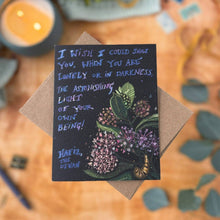 I WISH I COULD SHOW
YOU, WHEN YOU ARE
LONELY OR IN DARKNESS
THE ASTONISHING
LIGHT
OF YOUR
OWN
BEING!
HAFIZ,
THE
DIVAN